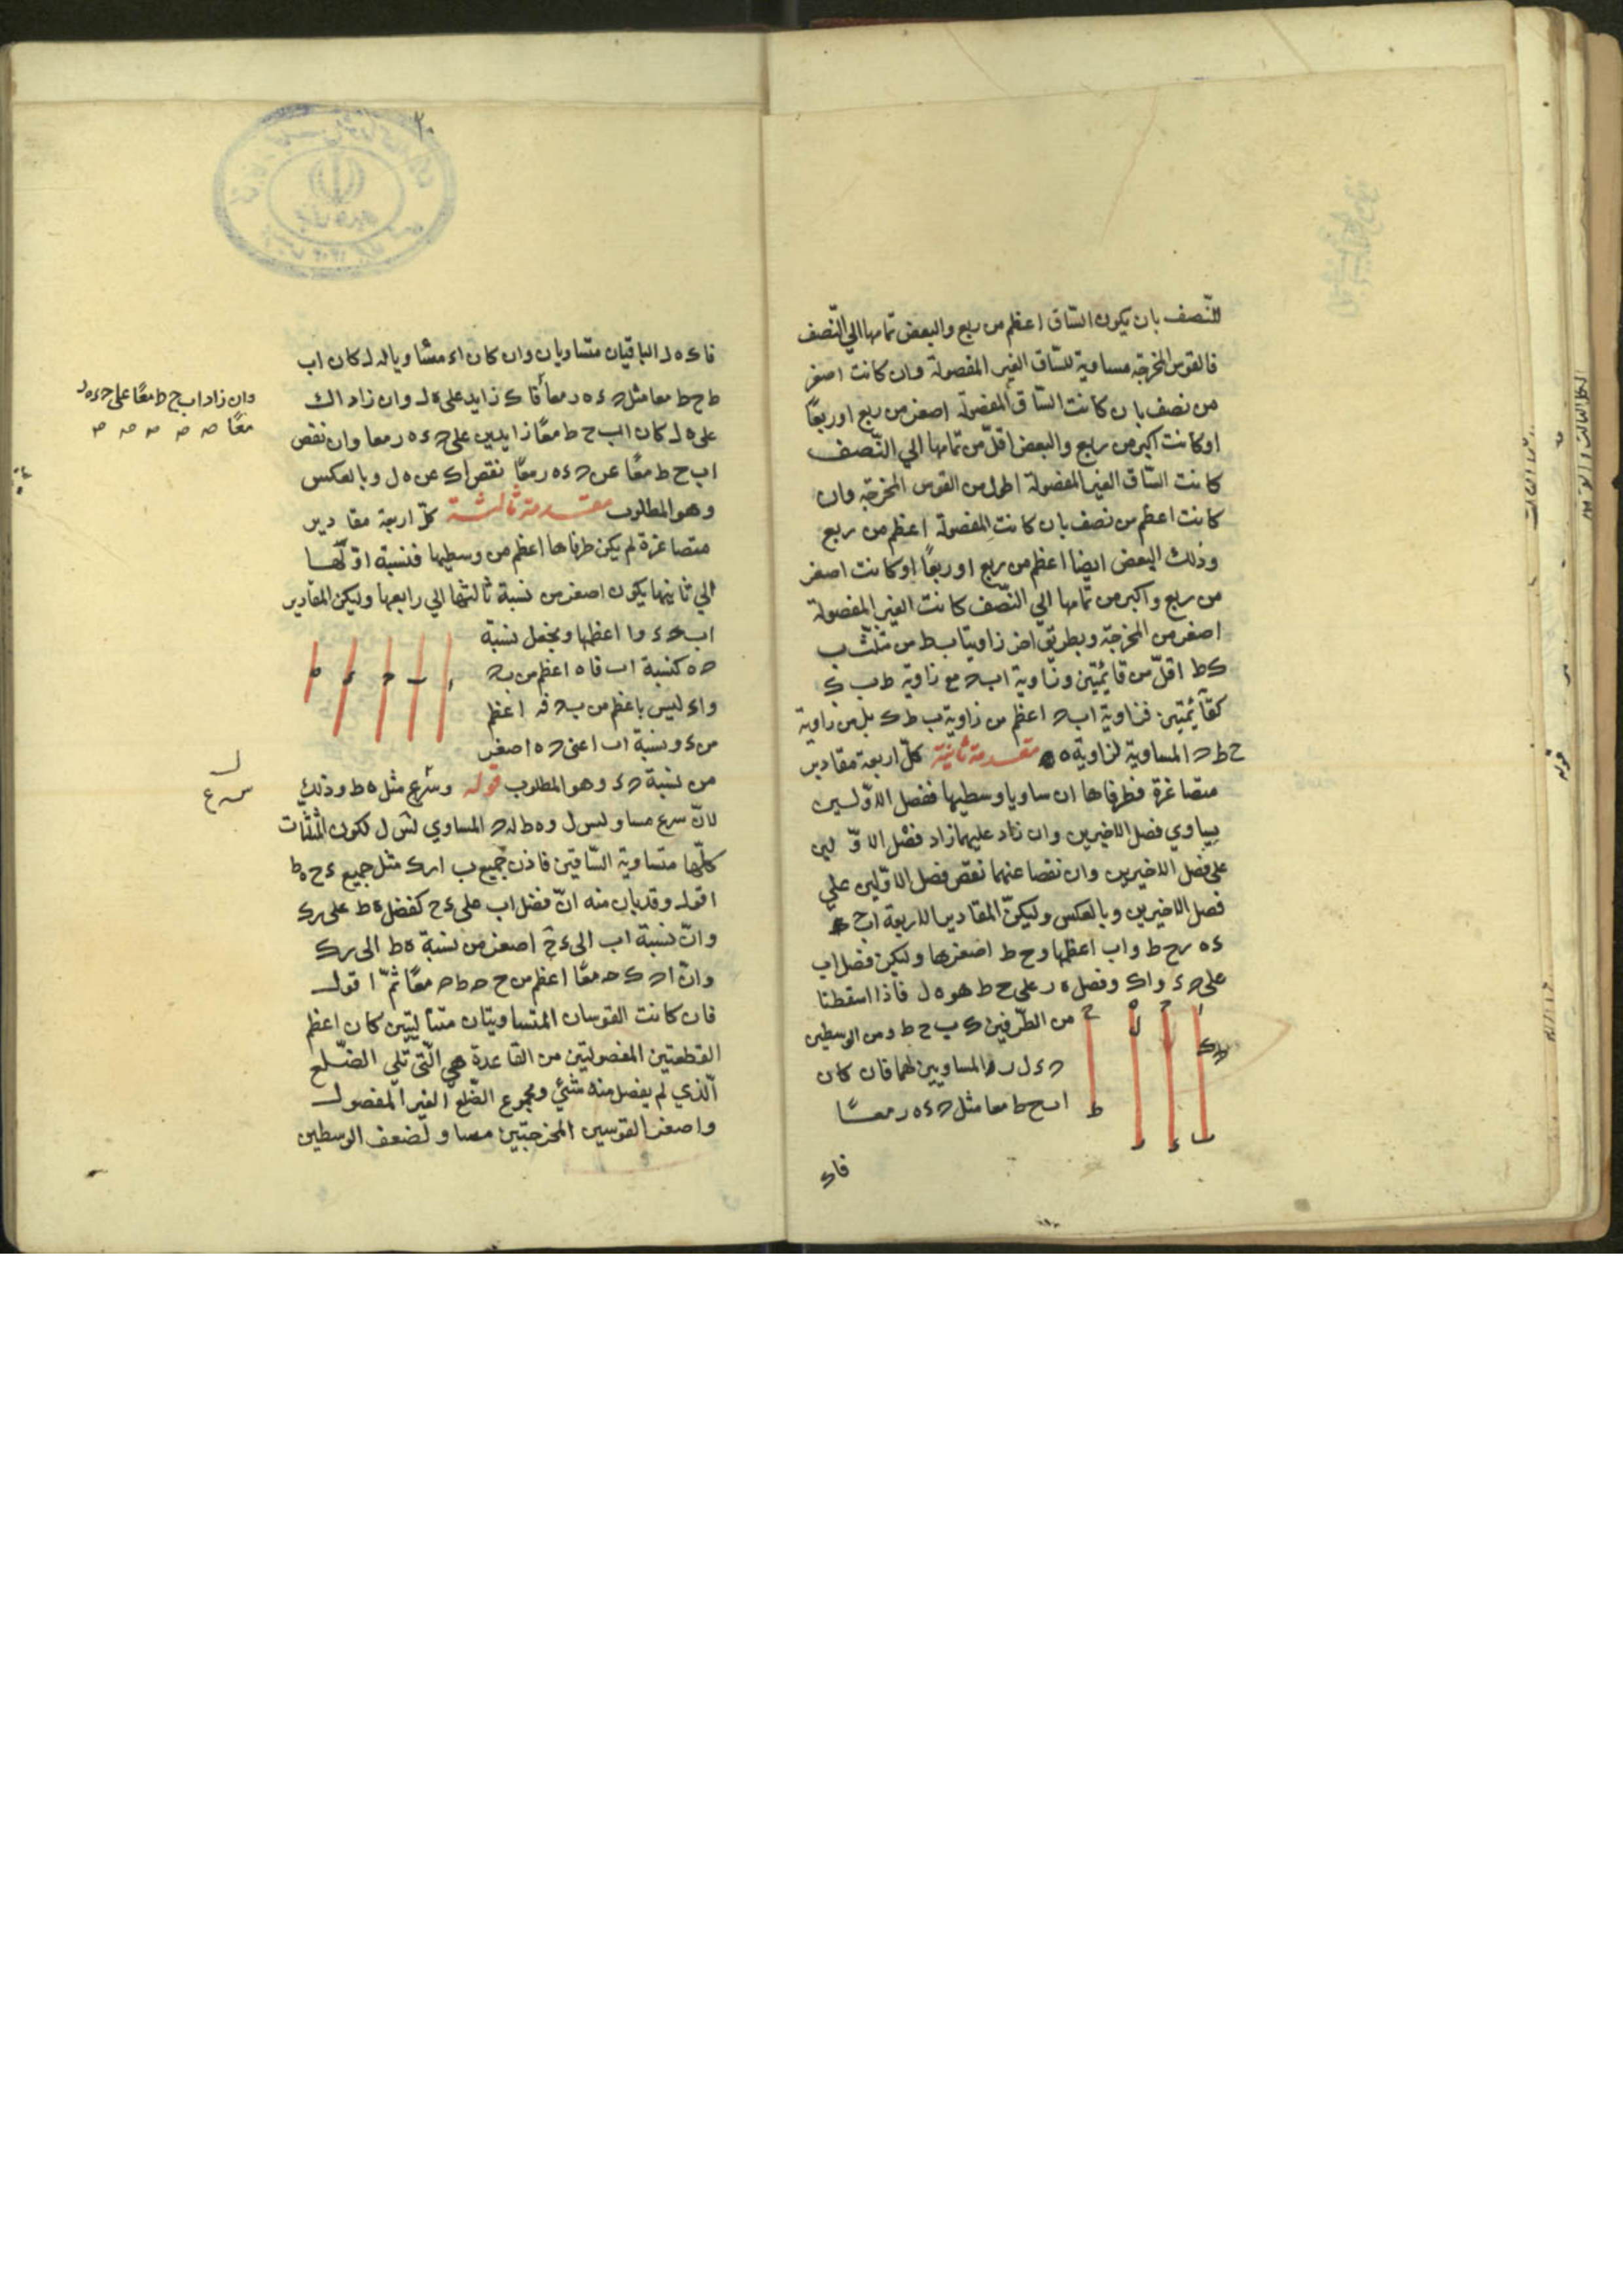 للنّصف بان يكون السّاق اعظم من ربع والبعض تمامها الي النّصف
فالقوس المخرجة مساوية للسّاق الغير المفصولة وان كانت اصغر
من نصف بان كانت السّاق المفصولة اصغر من ربع او ربعًا
او كانت اكبر من ربع والبعض اقلّ من تمامها الي النّصف
كانت السّاق الغير المفصولة اطول من القوس المخرجة وان
كانت اعظم من نصف بان كانت المفصولة اعظم من ربع
وذلك البعض ايضا اعظم من ربع او ربعًا او كانت اصغر
من ربع واكبر من تمامها الي النّصف كانت الغير المفصولة
اصغر من المخرجة وبطريق اخر زاويتا ب ط من مثلّث ب
ك ط اقلّ من قائمتين وزاوية اب ح مع زاوية ط ب ك
كقائمتين فزاوية اب ح اعظم من زاوية ب ط ك بل من زاوية
ح ط ح المساوية لزاوية ه مقدمة ثانية كلّ اربعة مقادير
متصاغرة فطرفاها ان ساويا وسطيها ففضل الاوّلين
يساوي فضل الاخيرين وان زاد عليهما زاد فضل الاوّلين
على فضل الاخيرين وان نقصا عنهما نقص فضل الاوّلين علي
فضل الاخيرين وبالعكس وليكن المقادير الاربعة اب ح
ء ه ر ح ط واب اعظمها وح ط اصغرها وليكن فضل اب
على ح ء واك وفضل ه ر على ح ط هو ه ل فاذا اسقطنا
من الطّرفين ك ب ح ط ومن الوسطين
ح ء ل ر المساويين لهما فان كان
اب ح ط معا مثل ح ء ه ر معًا
فاك
فاك ه ل الباقيان متساويان وان كان اك مساويا له ل كان اب
ح ط معا مثل ح ء ه ر معا فاك زايد على ه ل وان زاد اك
على ه ل كان اب ح ط معًا زايدين على ح ء ه ر معا وان نقص
اب ح ط معًا عن ح ء ه ر معًا نقص اك عن ه ل وبالعكس
وهو المطلوب مقدمة ثالثة كلّ اربعة مقادير
متصاغرة لم يكن طرفاها اعظم من وسطيها فنسبة اوّلها
الي ثانيها يكون اصغر من نسبة ثالثها الي رابعها وليكن المقادير
اب ح ء وا اعظمها ونجعل نسبة
ح ه كنسبة اب فاه اعظم من ب ح
واء ليس باعظم من ب ح فه اعظم
من ء ونسبة اب اعنى ح ه اصغر
من نسبة ح ء وهو المطلوب قوله وسَرع مثل ه ط وذلك
لانّ سرع مساو لس ل وه ط له ح المساوي لس ل لكون المثلّثات
كلّها متساوية السّاقين فاذن جميع ب ا رك مثل جميع ء ح ه ط
اقول وقد بان منه انّ فضل اب على ء ح كفضل ه ط على رك
وانّ نسبة اب الى ء ح اصغر من نسبة ه ط الى رك
وانّ ا ح ك ح معًا اعظم من ح ح ط ح معًا ثمّ اقول
فان كانت القوسان المتساويتان متتاليتين كان اعظم
القطعتين المفصولتين من القاعدة هي الّتي تلى الضّلع
الّذي لم يفصل منه شئ ومجموع الضّلع الغير المفصول
واصغر القوسين المخرجتين مساو لضعف الوسطين
وان زاد اب ح ط معًا على ح ء ه ر
معًا